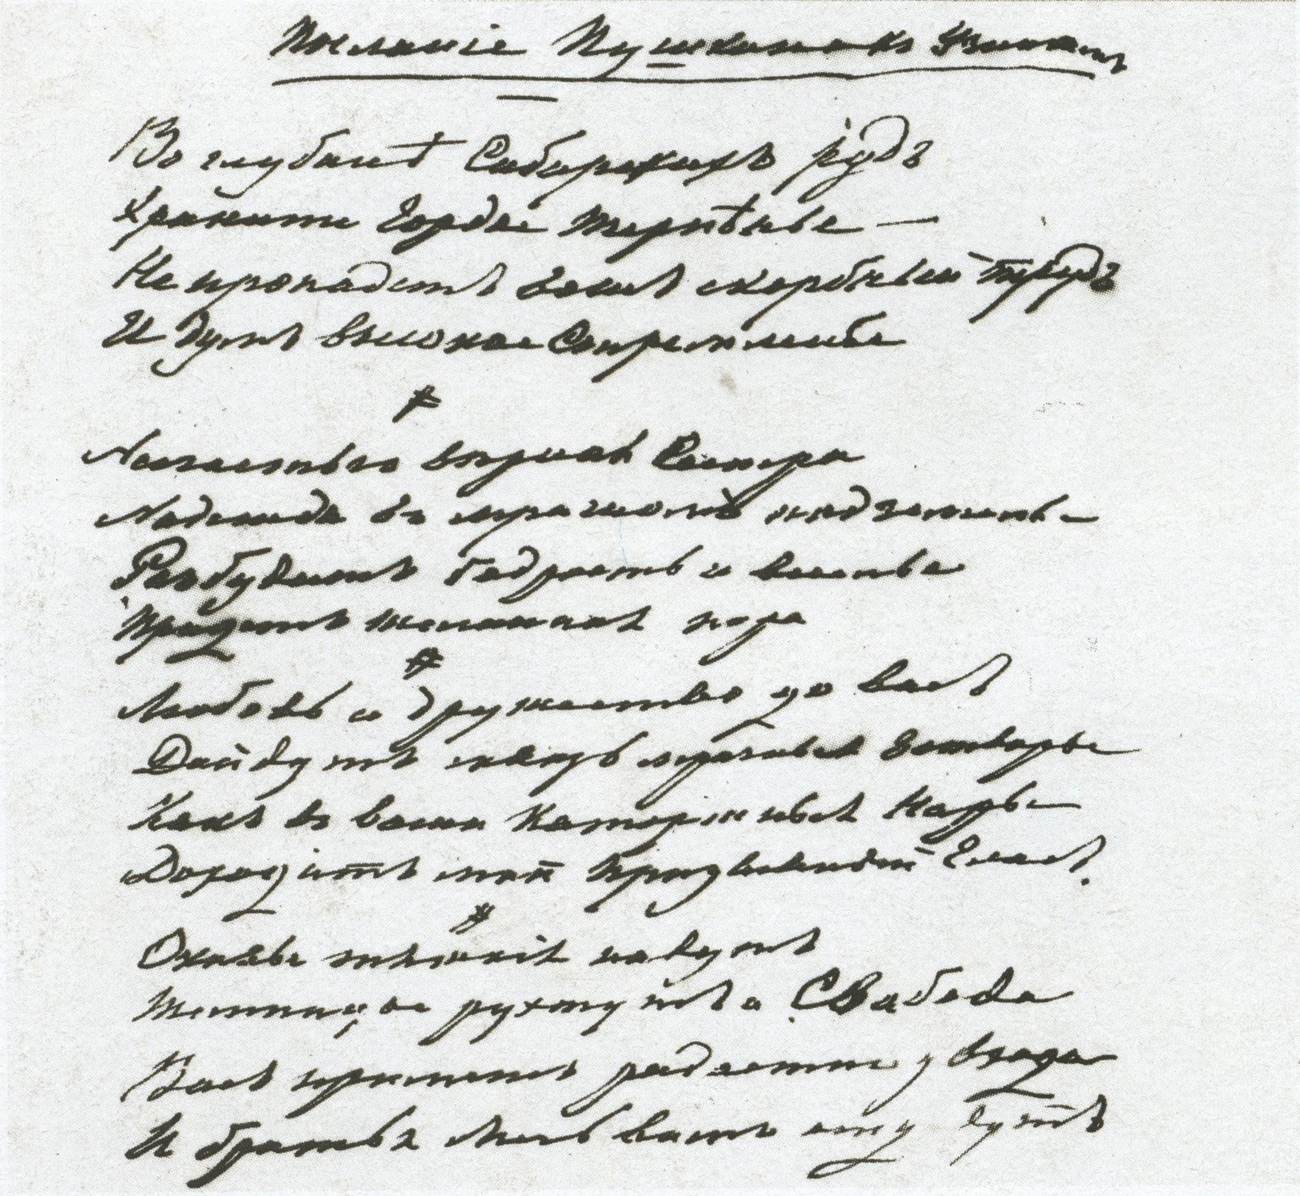 Посланіе Пушкина къ
Во глубинѣ Сибирскихъ рудъ
Храните гордое терпѣнье —
Не пропадетъ вашъ скорбный трудъ
И думъ высокое стремленье
Несчастью вѣрная сестра
Надежда въ мрачномъ подземелье
Разбудитъ бодрость и веселье
Придетъ желанная пора
Любовь и дружество до васъ
Дойдутъ сквозь мрачные затворы
Какъ въ ваши каторжные норы
Доходитъ мой Призывной гласъ.
Оковы тяжкіе падутъ
Темницы рухнутъ и Свабода
Васъ приметъ радостно у входа
И братья мечь вамъ отдадутъ